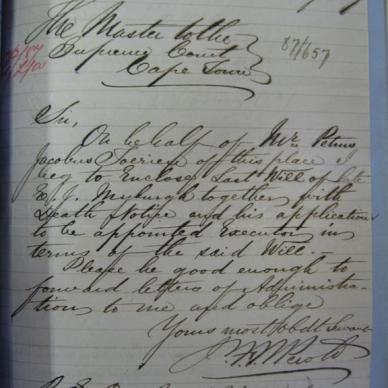 The Master to the
Supreme Court
Cape Town
87/657
Sir,
On behalf of Mr. Petrus
Jacobus Joerien of this place I
beg to Enclose Last Will of late
E. J. Myburgh together with
Death Notice and his application
to be appointed Executor in
terms of the said Will.
Please be good enough to
forward letters of Administra-
tion to me and oblige
Yours most Obedt Servant